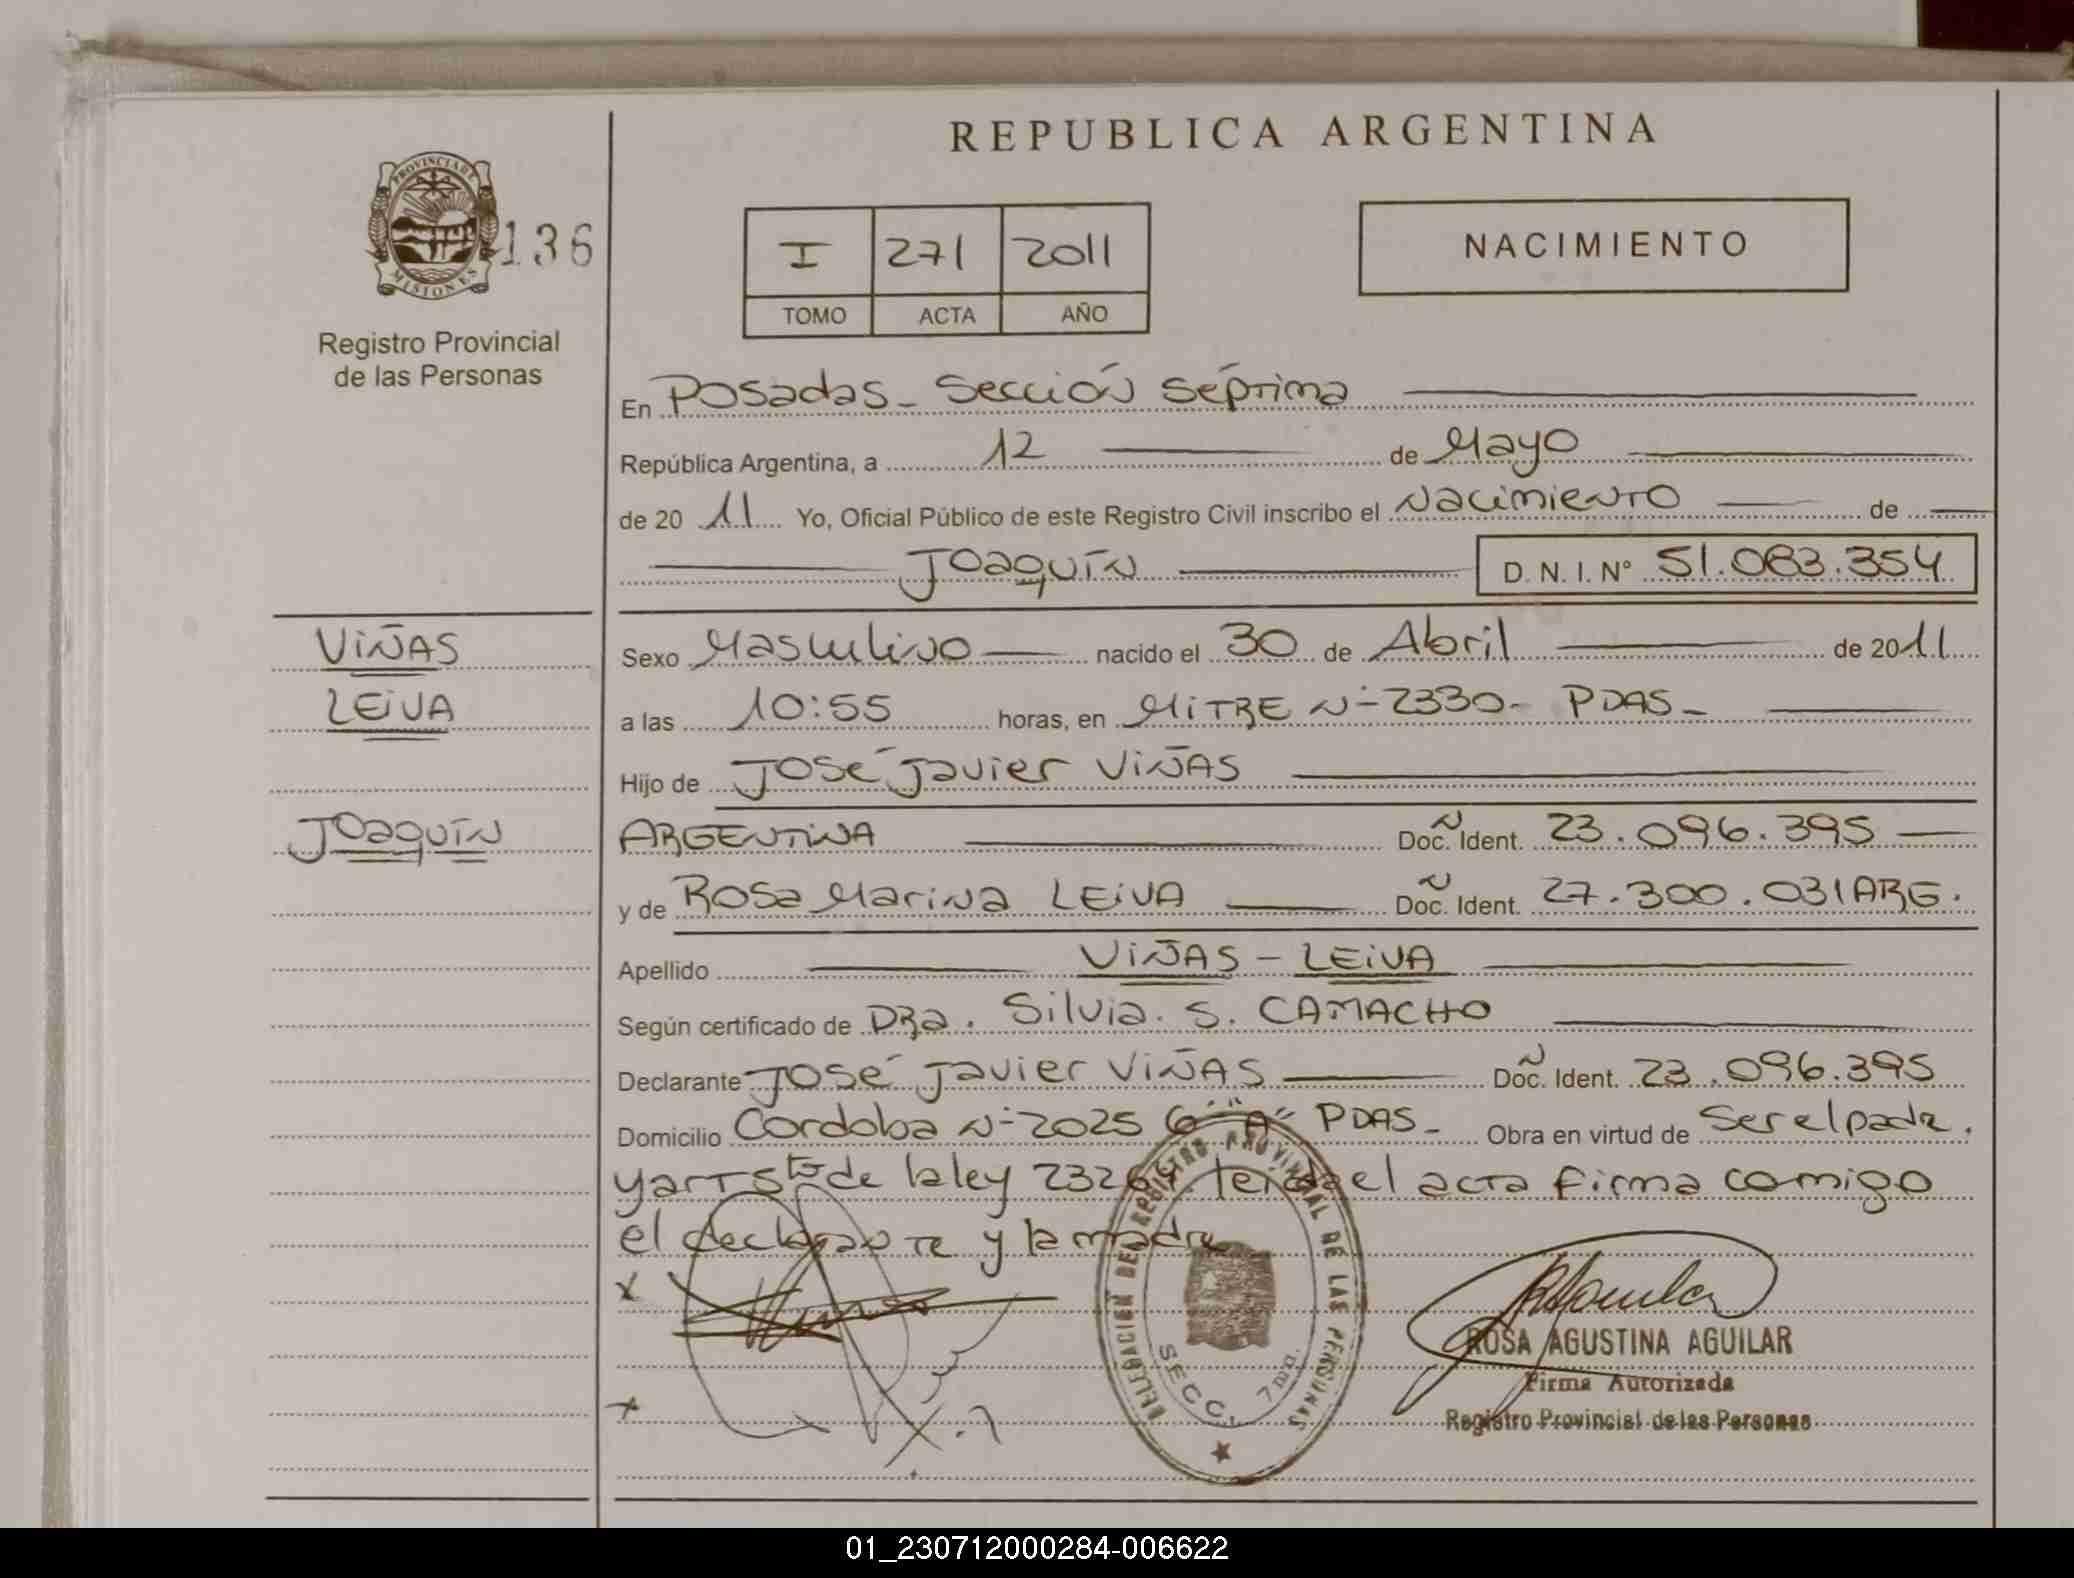 REPUBLICA ARGENTINA
PROVINCIA DE MISIONES
136
Registro Provincial
de las Personas
I 271 2011
TOMO ACTA AÑO
NACIMIENTO
En Posadas - Sección Séptima
República Argentina, a 12 de Mayo
de 2011 Yo, Oficial Público de este Registro Civil inscribo el Nacimiento de
Joaquín D. N. I. N° 51.083.354
VIÑAS
LEIVA
Joaquín
Sexo Masculino nacido el 30 de Abril de 2011
a las 10:55 horas, en MITRE N° 2330 - PDAS -
Hijo de José Javier VIÑAS
ARGENTINA Doc. Ident. 23.096.395
y de Rosa Marina LEIVA Doc. Ident. 27.300.031 ARG.
Apellido VIÑAS - LEIVA
Según certificado de DRa. Silvia. S. CAMACHO
Declarante José Javier VIÑAS Doc. Ident. 23.096.395
Domicilio Cordoba N° 2025 6° "A" PDAS - Obra en virtud de ser el padre.
y art 5to de la ley 23264 leída el acta firma comigo
el declarante y la madre
x
x
DELEGACION DEL REGISTRO PROVINCIAL DE LAS PERSONAS
SECC. 7ma.
ROSA AGUSTINA AGUILAR
Firma Autorizada
Registro Provincial de las Personas
01_230712000284-006622